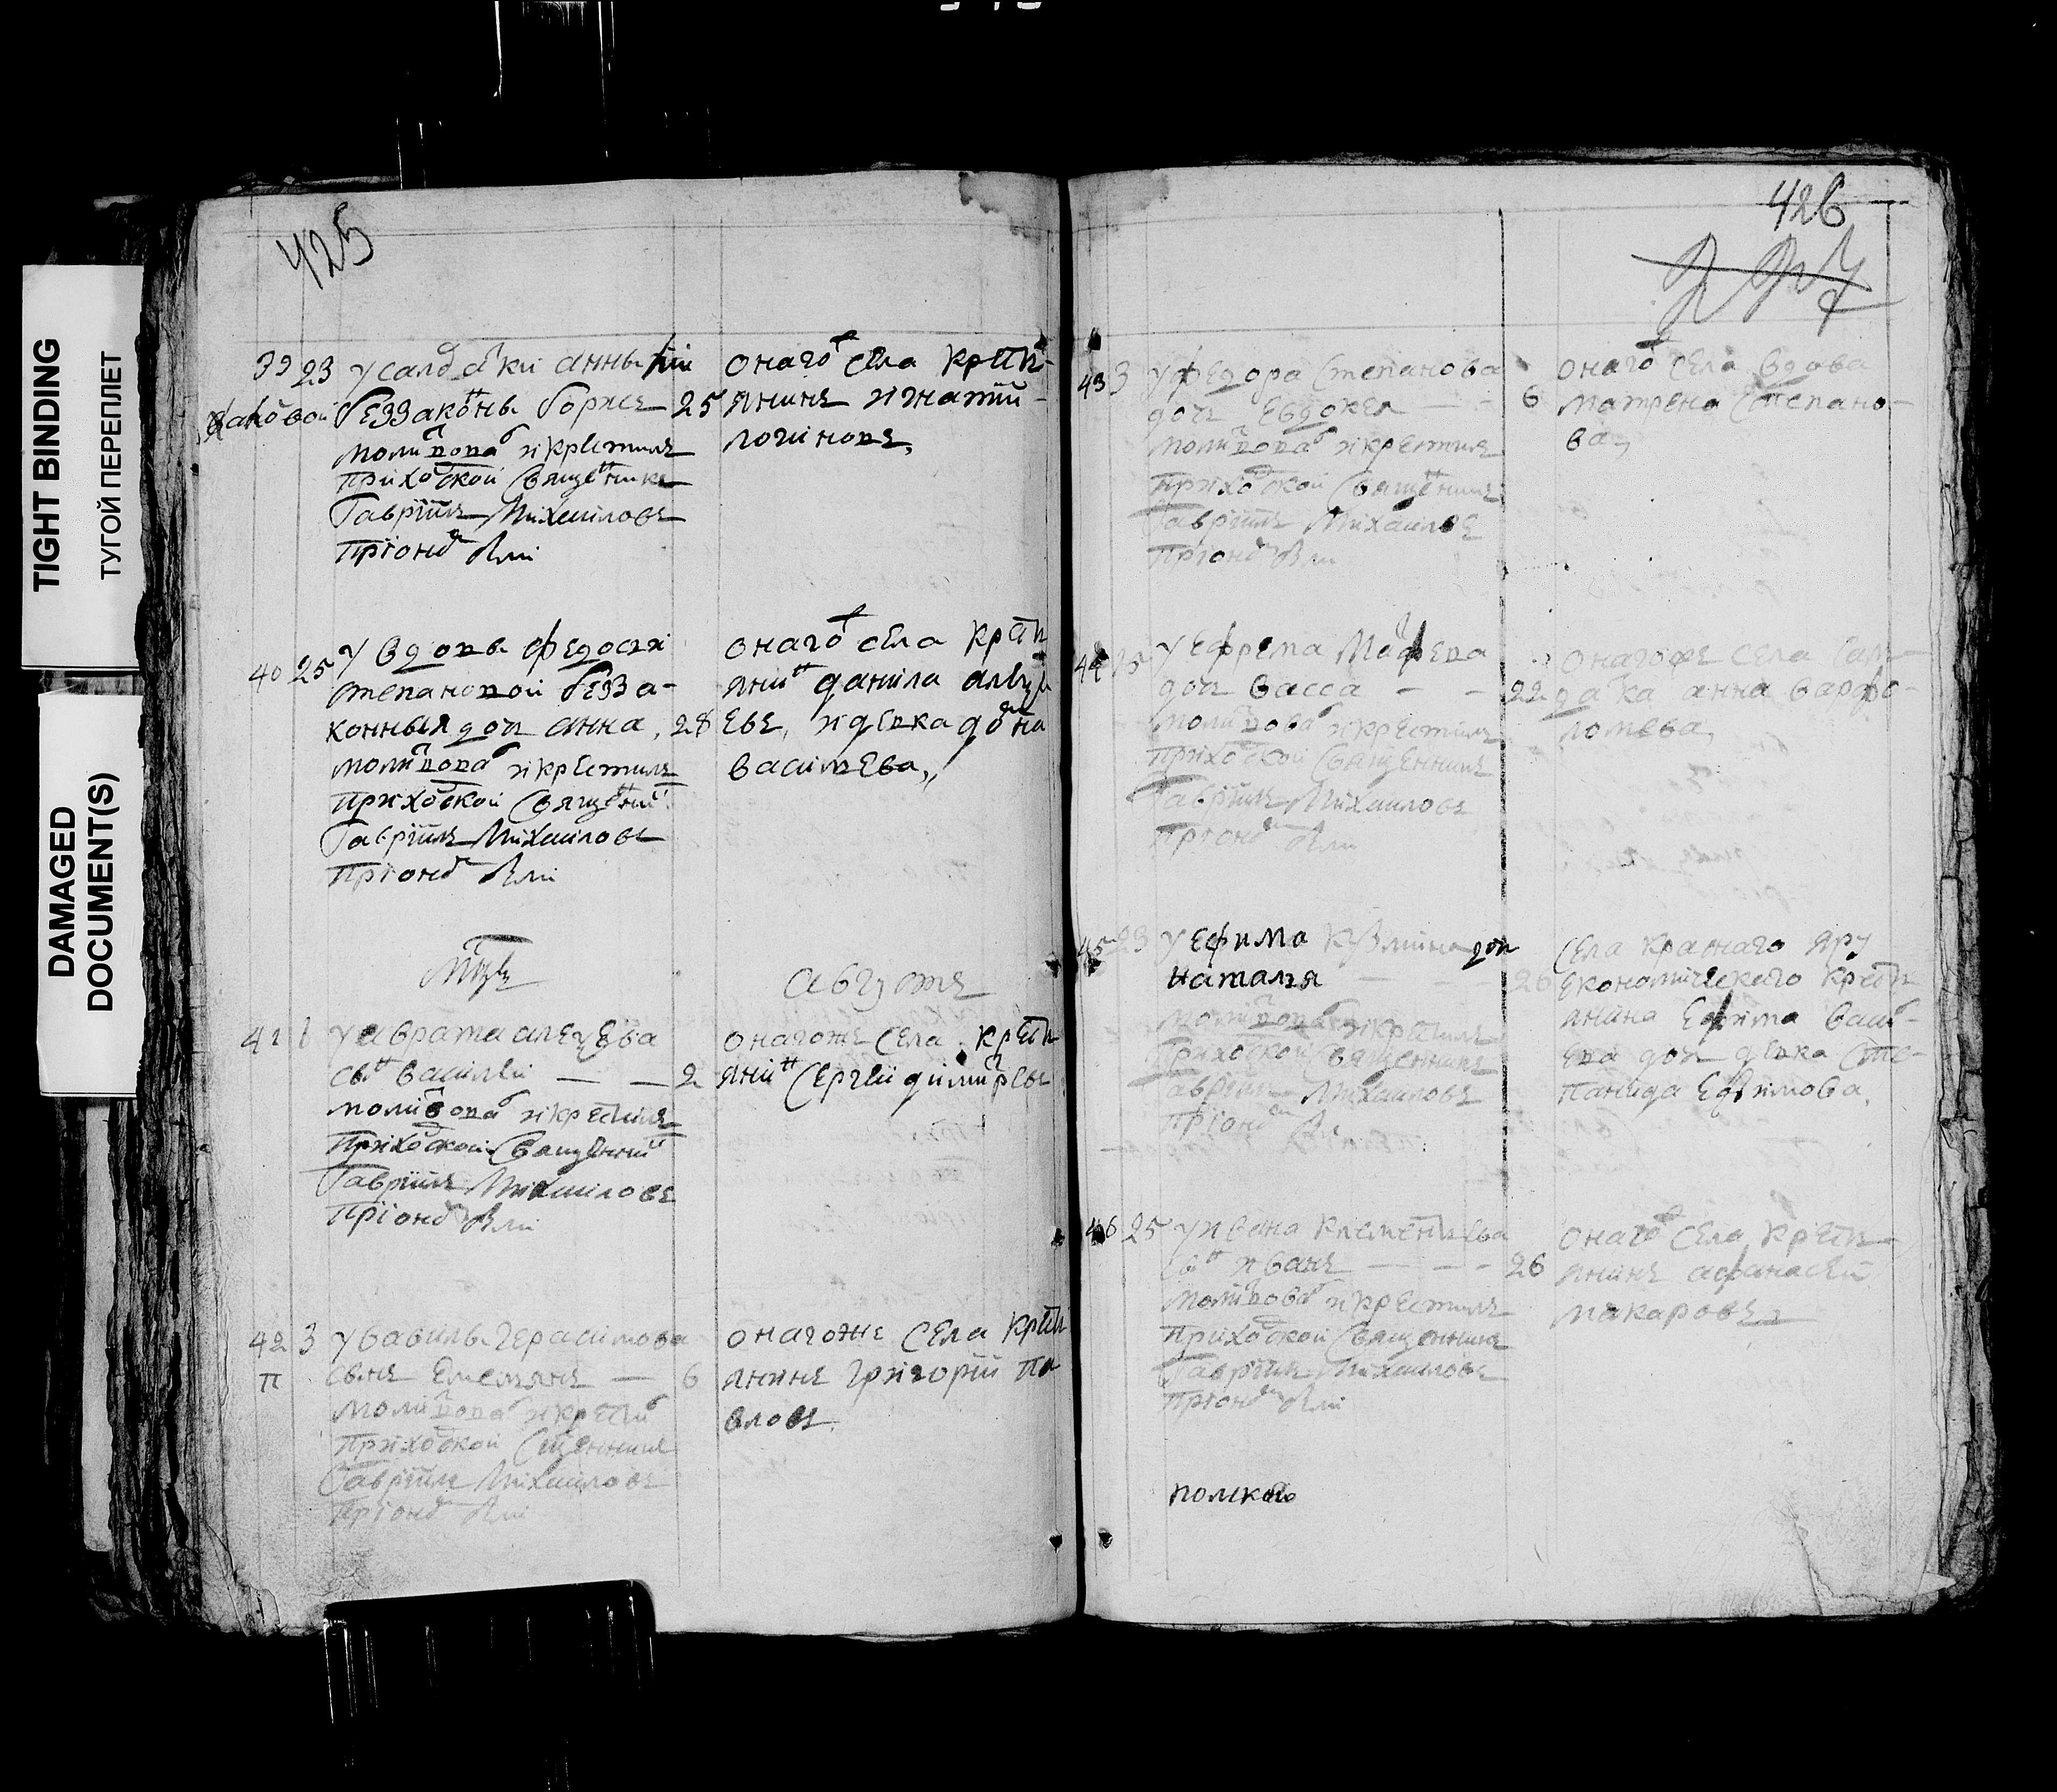 TIGHT BINDING
ТУГОЙ ПЕРЕПЛЕТ
DAMAGED
DOCUMENT(S)
425
39 23 у салдатки анны
беззаконъ борисъ 25
молитвова и крестилъ
приходской священникъ
Гавріилъ Михаиловъ
при онд
онаго села крестъ-
янинъ игнатий
логиновъ,
40 25 у вдовы федосьи
степановой безза-
конныя дочь анна, 28
молитвова и крестилъ
приходской священни
Гавріилъ Михаиловъ
при онд
онаго села крестъ
янин данила
евъ, и девка до на
василева,
Мцъ
августъ
41 1 у
сын василей — — 2
молитвова и крестилъ
приходской священни
Гавріилъ Михаиловъ
при онд
онагоже села крестъ
янин Сергей димитревъ
42 3 у василья герасимова
п сынъ Емельянъ — 6
молитвова и крести
приходской сщенникъ
Гавріилъ Михаиловъ
при онд
онагоже села крестъ
янинъ григорий па
вловъ.
426
43 3 у федора Степанова
дочь евдокея — 6
молитвова и крестилъ
приходской священникъ
Гавріилъ Михаиловъ
при онд
онаго села вдова
матрена Степано-
ва,
44 у ефрема
дочь васса - - 22
молитвова и крестилъ
приходской священникъ
Гавріилъ Михаиловъ
при онд
онагоже села сал-
датка анна варфо-
ломева,
45 23 у ефима кузмина дочь
наталья — - - 26
молитвова и крестилъ
приходской священникъ
Гавріилъ Михаиловъ
при онд
села краснаго яру
економическаго крестъ
янина ефима васил-
ева дочь девка Сте-
панида ефимова,
46 25 у ивана клементьева
сын иванъ — - - 26
молитвова и крестилъ
приходской священникъ
Гавріилъ Михаиловъ
при онд
онаго села крестъ-
янинъ афанасей
макаровъ,